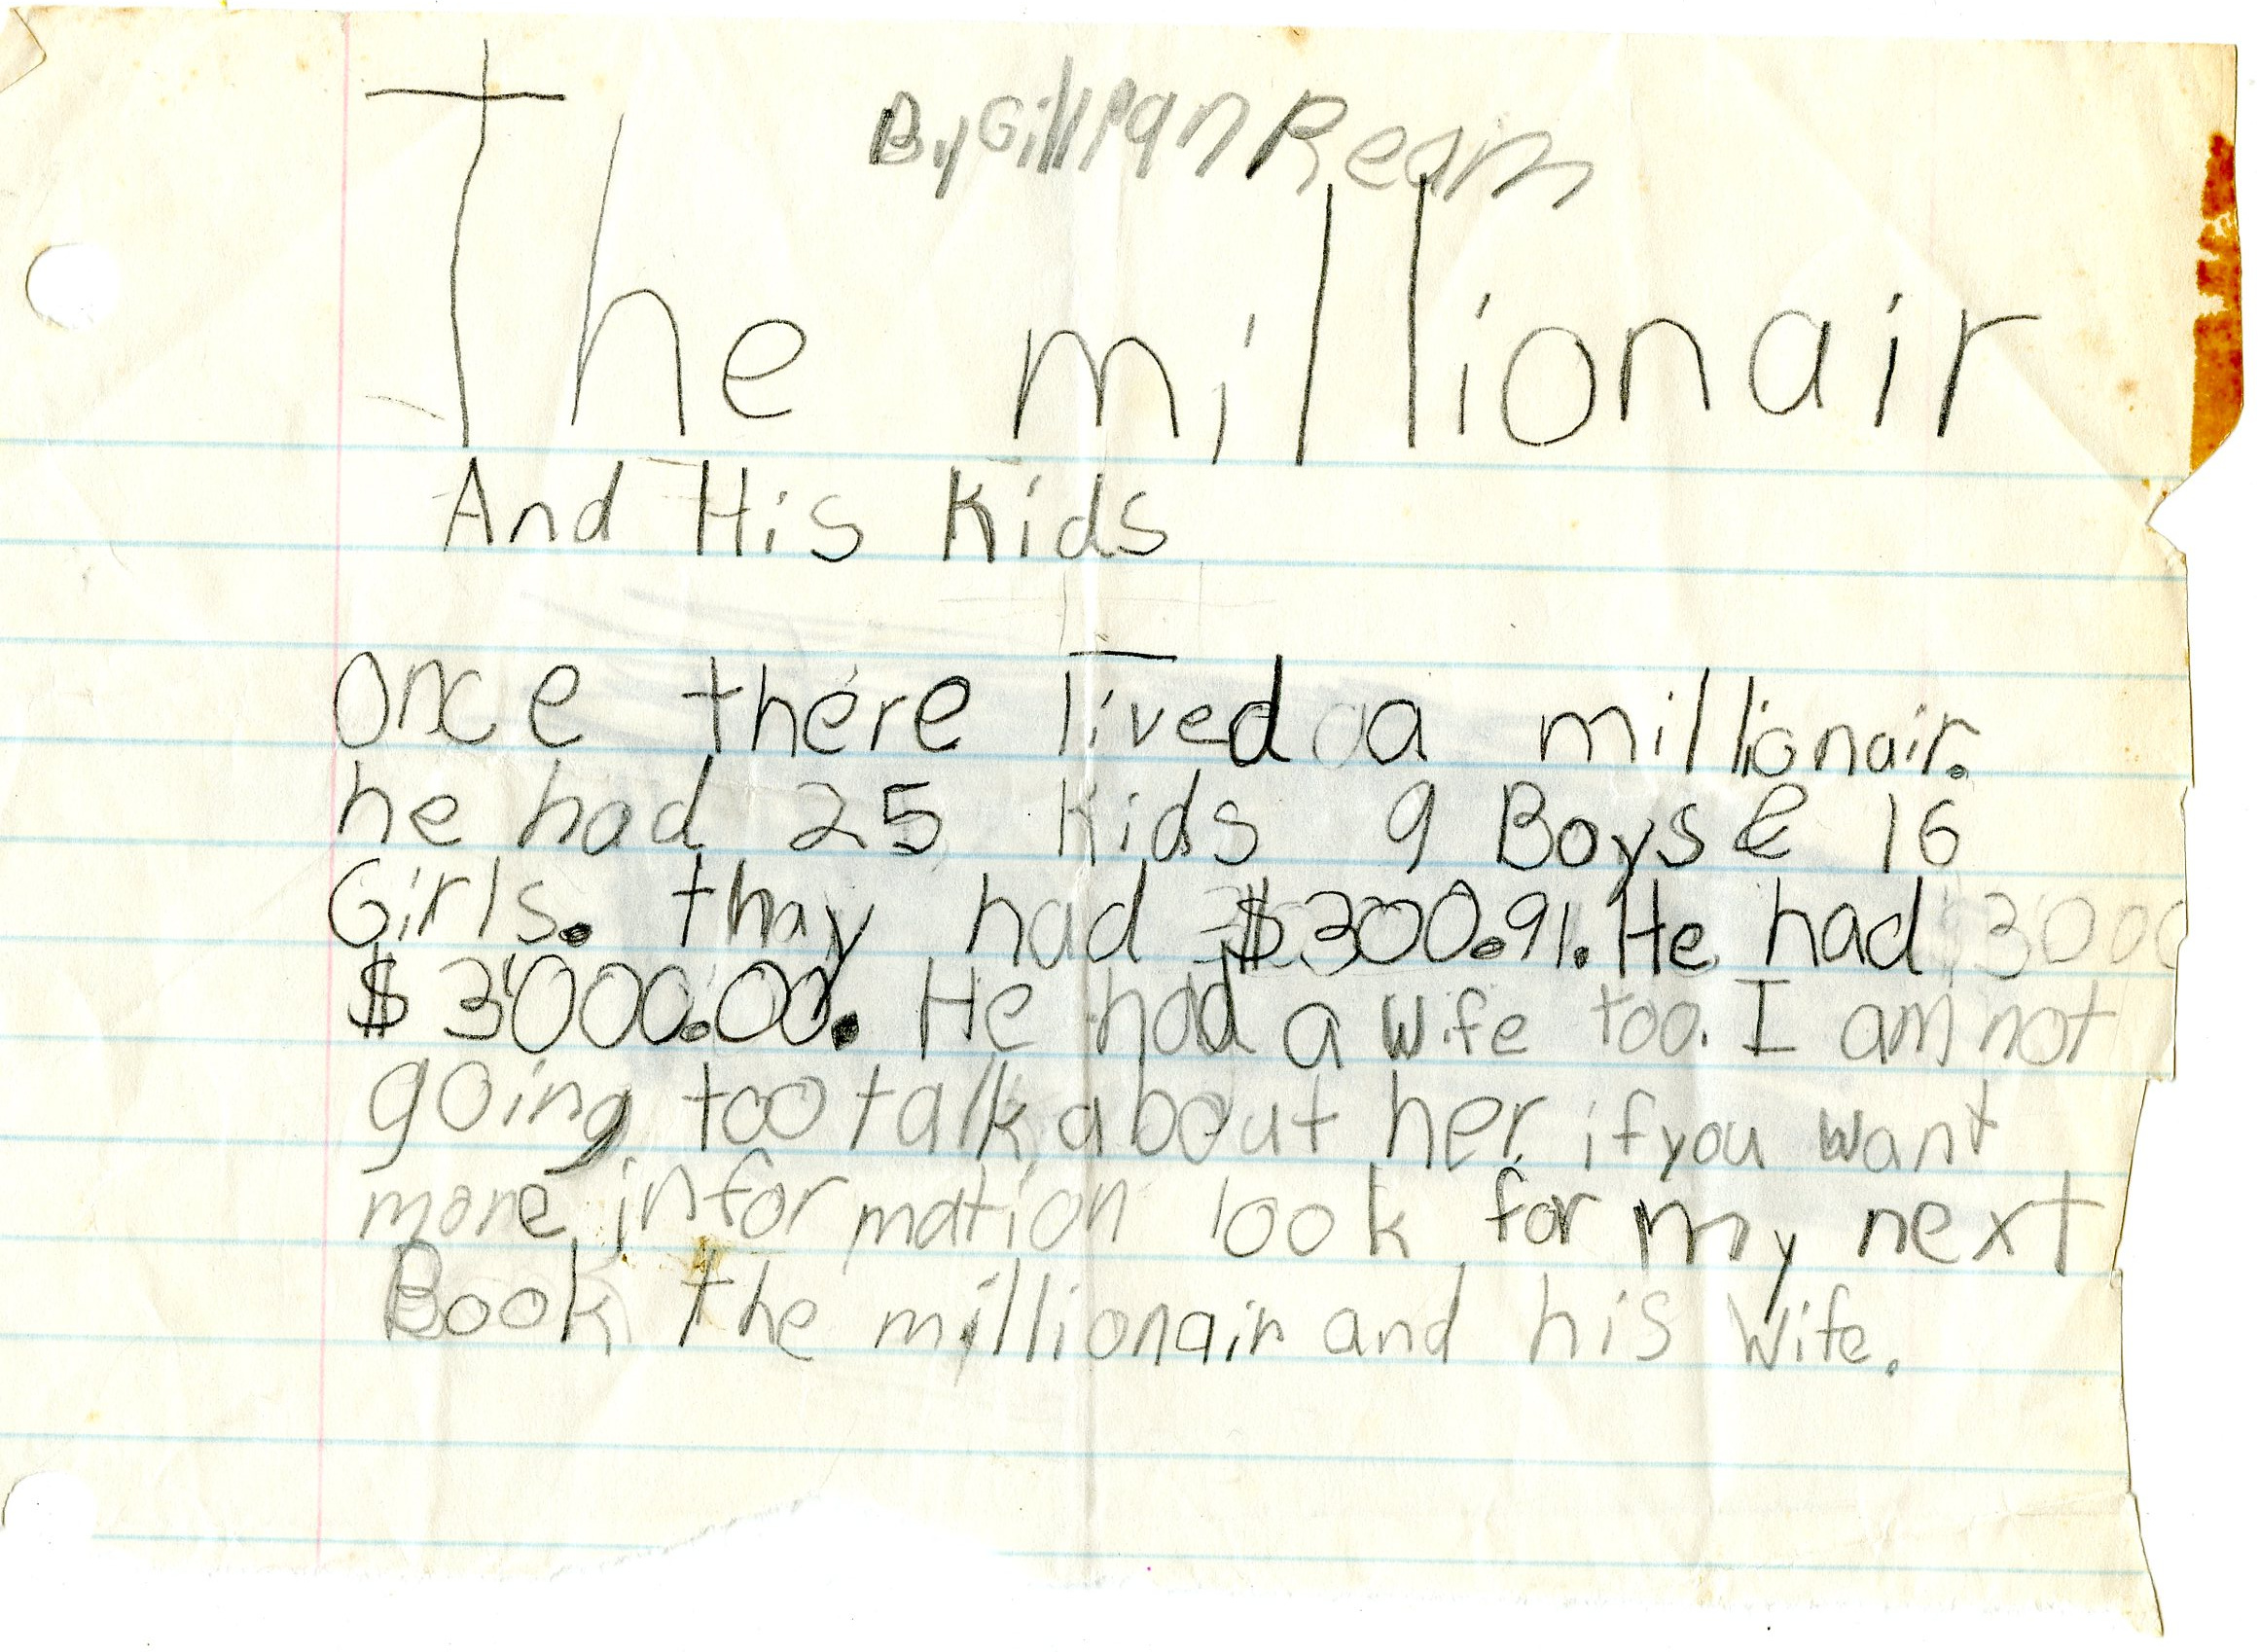 By Gillian Ream
The millionair
And His Kids
Once there lived a a millionair.
he had 25 kids 9 Boys & 16
Girls. thay had $300.91. He had 3'000
$3'000.00. He had a wife too. I am not
going too talk about her. if you want
more information look for my next
Book the millionair and his wife.